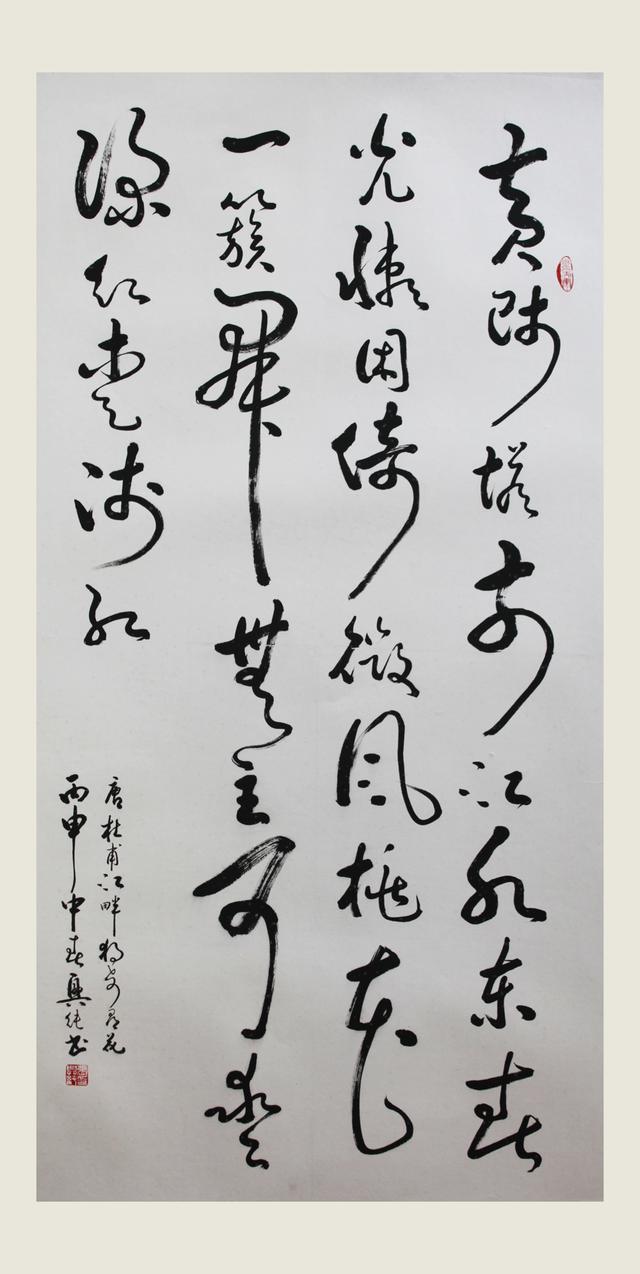 黄師塔前江水东春
光懶困倚微风桃花
一簇開無主可爱
深红爱浅红
唐杜甫江畔独步尋花
丙申中春興纯书